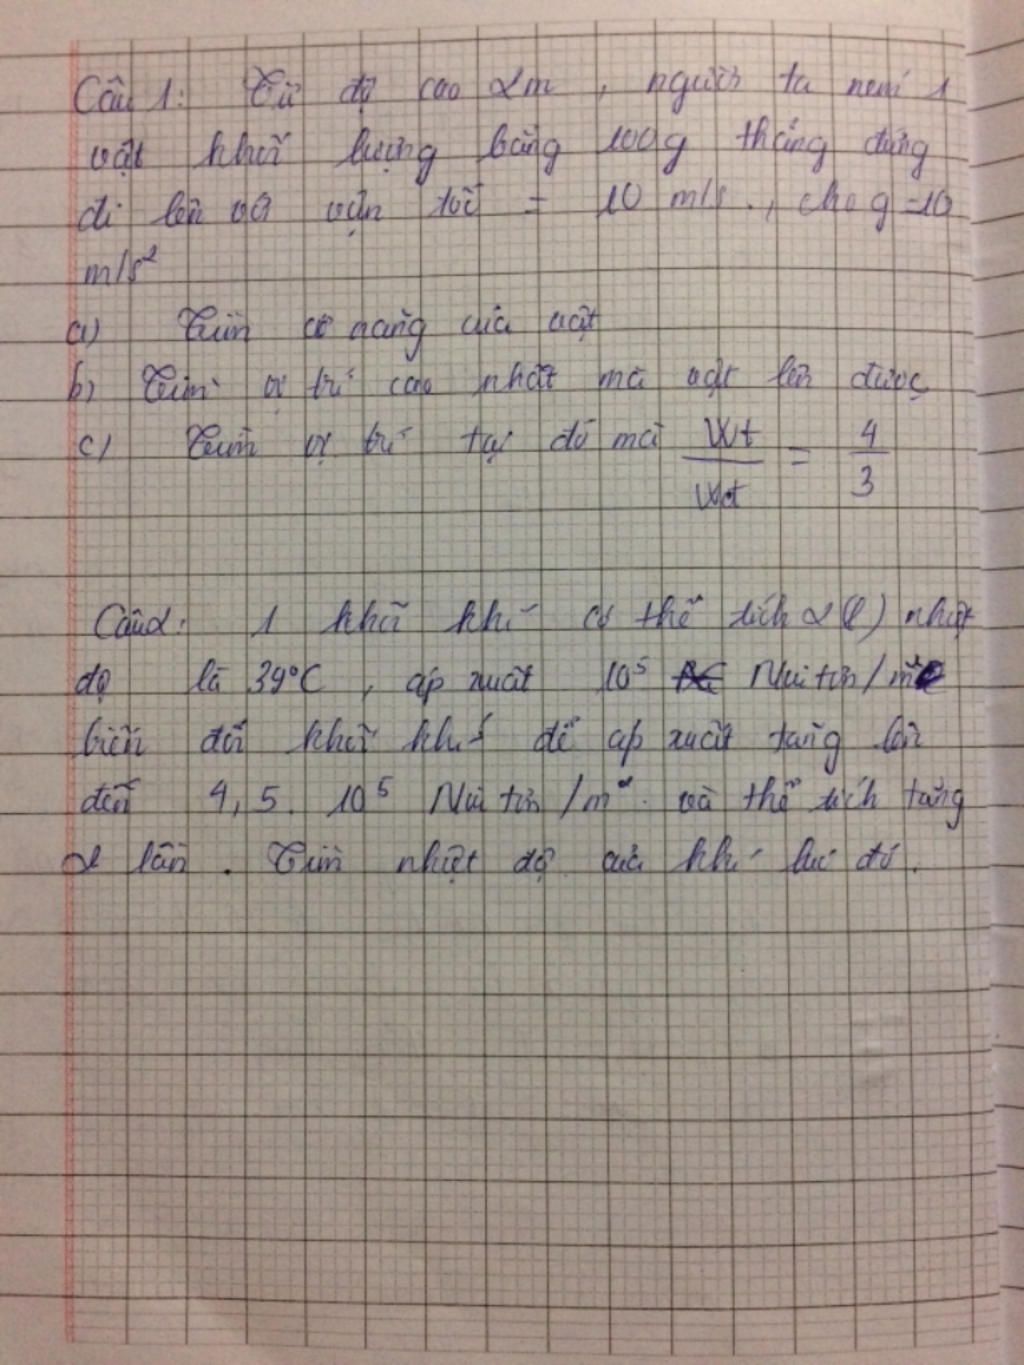 Câu 1: Từ độ cao 2m, người ta ném 1
vật khối lượng bằng 100g thẳng đứng
đi lên với vận tốc = 10 m/s., cho g=10
m/s²
a) Tìm cơ năng của vật
b) Tìm vị trí cao nhất mà vật lên được
c) Tìm vị trí tại đó mà Wt/Wđ = 4/3
Câu 2: 1 khối khí có thể tích 2 (l) nhiệt
độ là 39°C, áp xuất 10⁵ Niu tơn/m²
biến đổi khối khí để áp xuất tăng lên
đến 4,5. 10⁵ Niu tơn/m². và thể tích tăng
2 lần. Tìm nhiệt độ của khí lúc đó.